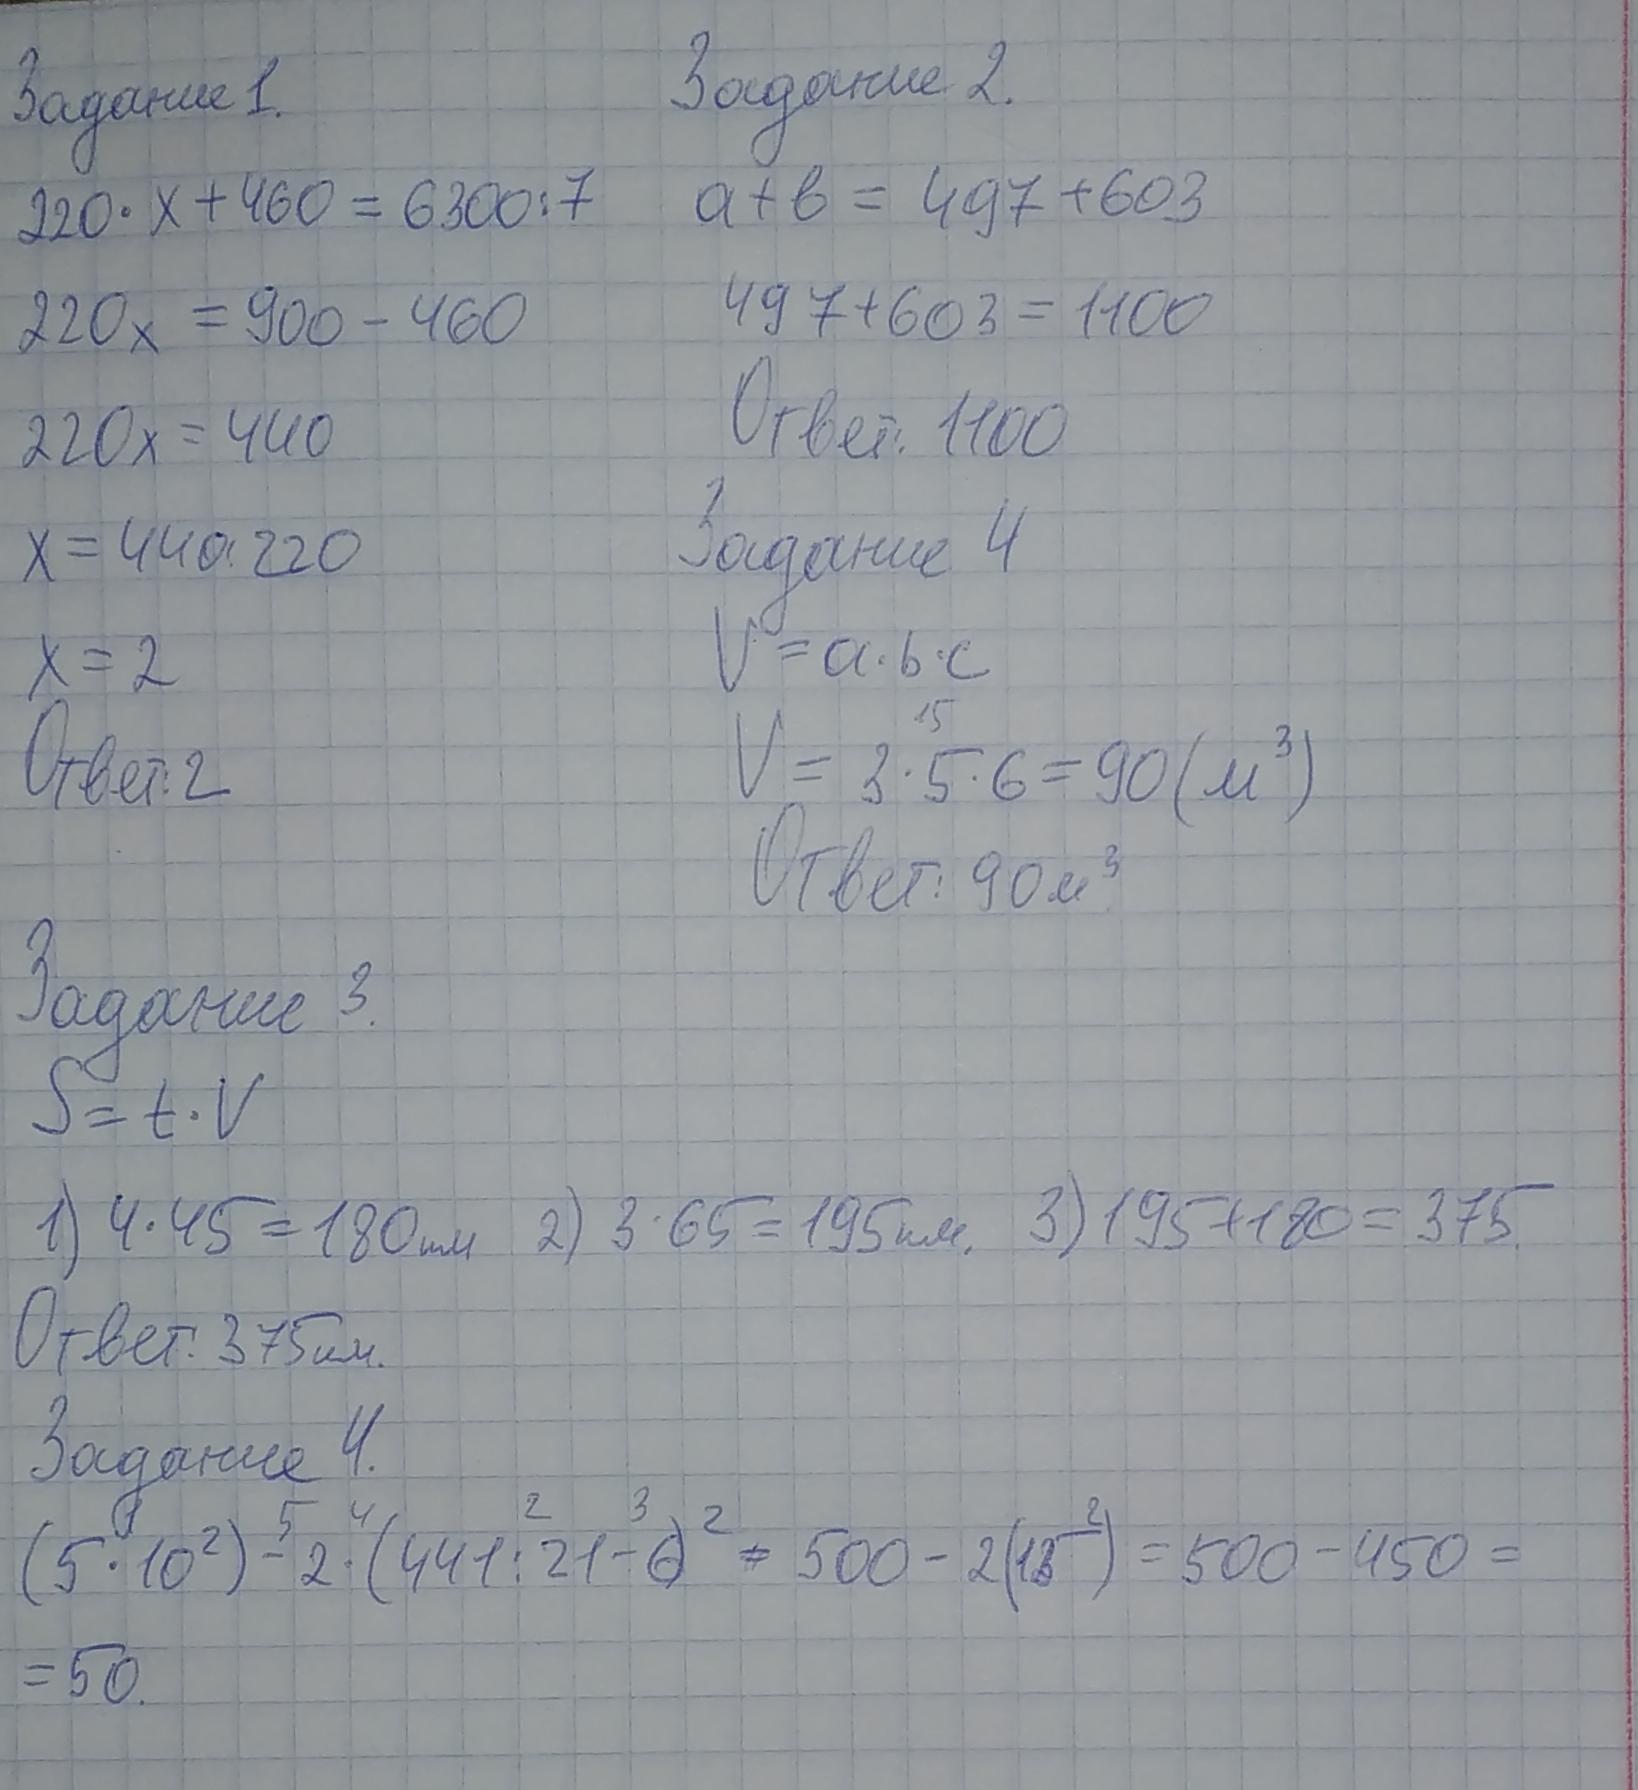 Задание 1.
220·x+460=6300:7
220x=900-460
220x=440
x=440:220
x=2
Ответ:2
Задание 2.
a+b=497+603
497+603=1100
Ответ: 1100
Задание 4
V=a·b·c
15
V=3·5·6=90(м³)
Ответ: 90м³
Задание 3.
S=t·V
1) 4·45=180км 2) 3·65=195км. 3) 195+180=375.
Ответ: 375км.
Задание 4.
5 4 2 3
(5·10²)-2·(441:21-6)²=500-2(15²)=500-450=
=50.